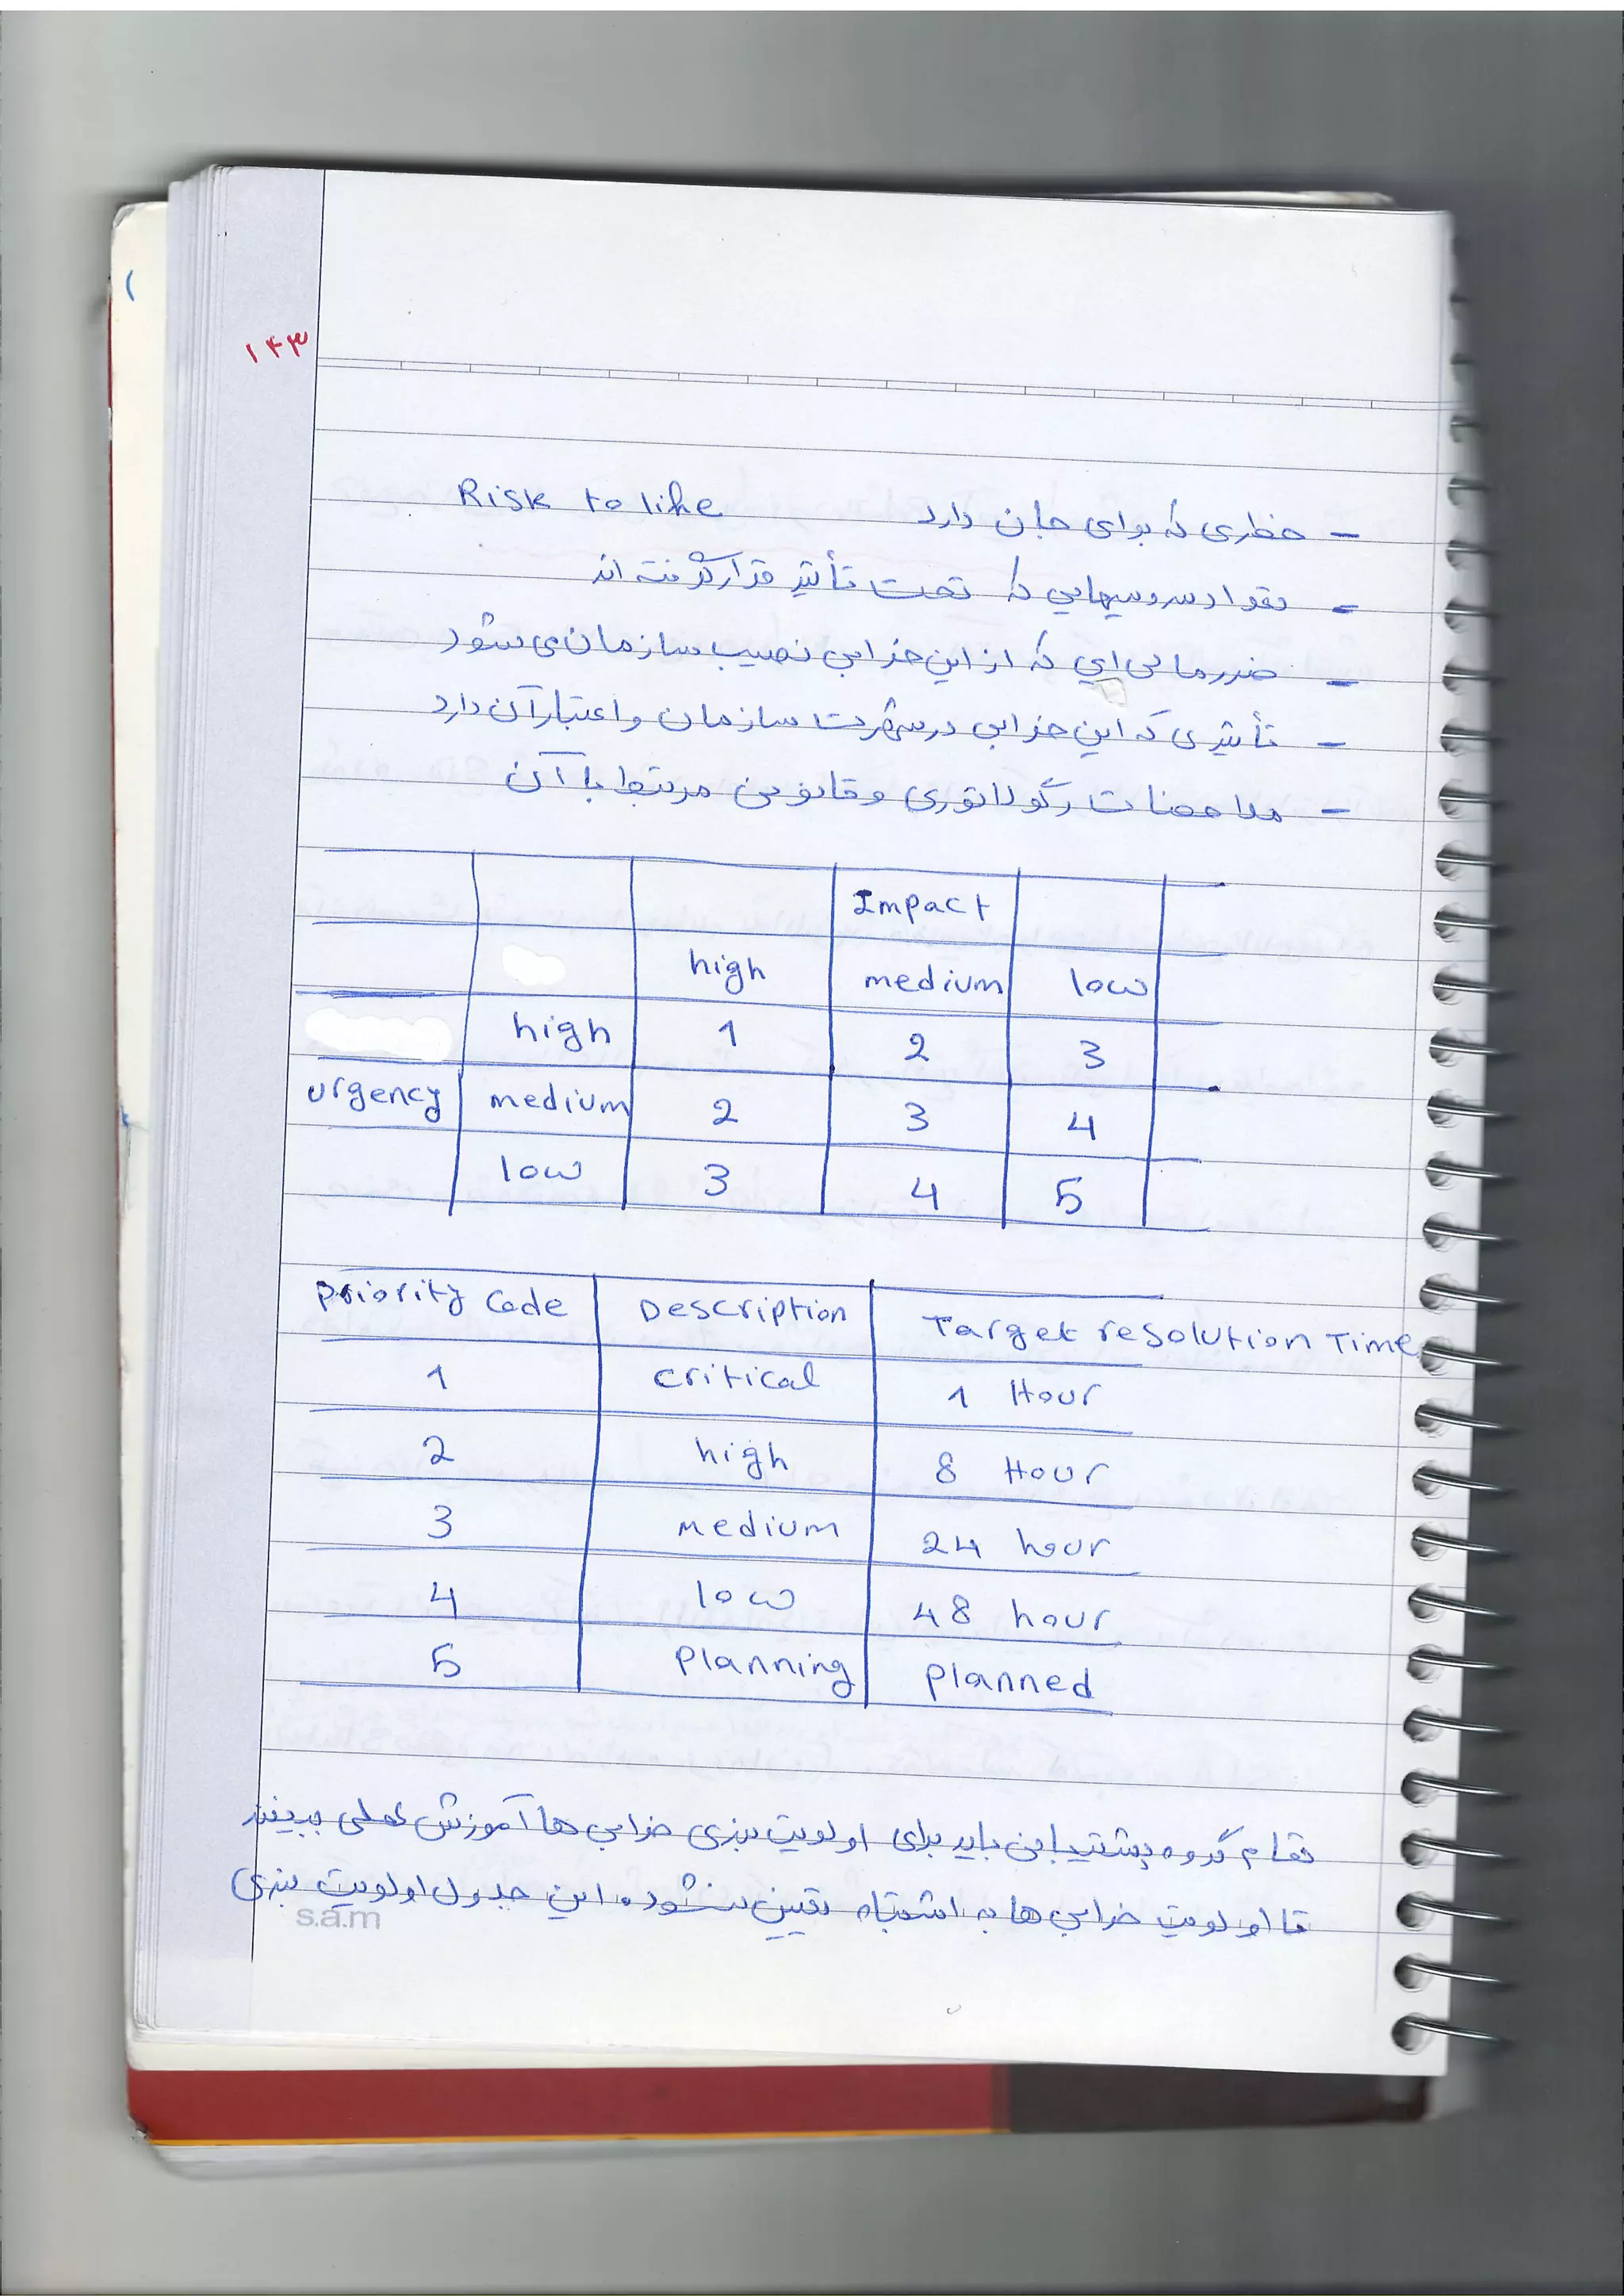 ۱۴۳
- خطری که برای جان دارد Risk to life
- تعداد سرویسهایی که تحت تأثیر قرار گرفته اند
- ضرر مالی ای که از این خرابی نصیب سازمان می شود
- تأثیری که این خرابی در شهرت سازمان و اعتبار آن دارد
- ملاحضات رگولاتوری و قانونی مرتبط با آن
Impact
high medium low
high 1 2 3
urgency medium 2 3 4
low 3 4 5
Priority Code Description Target resolution Time
1 critical 1 Hour
2 high 8 Hour
3 medium 24 hour
4 low 48 hour
5 Planning Planned
تمام گروه پشتیبانی باید برای اولویت بندی خرابی ها آموزش عملی ببینند
تا اولویت خرابی ها به اشتباه تعیین نشود. این جدول اولویت بندی
s.a.m